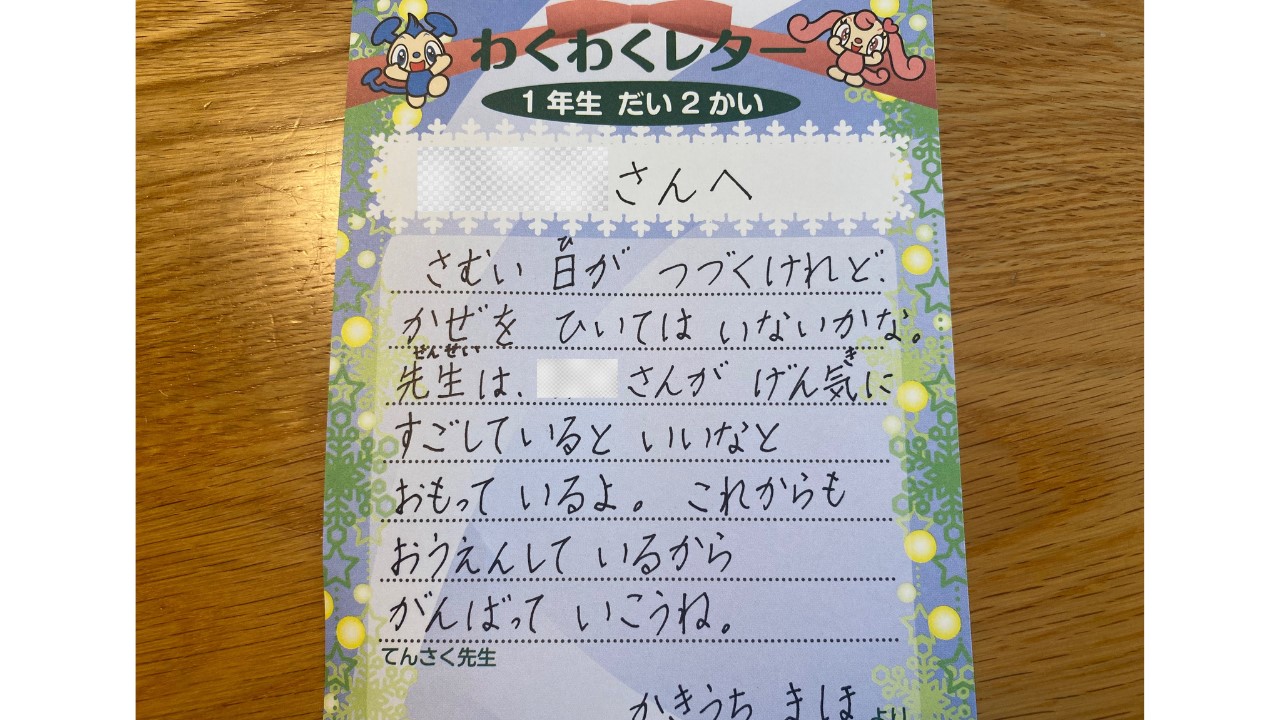 わくわくレター
1年生 だい2かい
さんへ
さむい 日が つづくけれど、
ひ
かぜを ひいては いないかな。
せんせい
先生は、 さんが げん気に
き
すごしていると いいなと
おもって いるよ。 これからも
おうえんして いるから
がんばって いこうね。
てんさく先生
かきうち まほ より